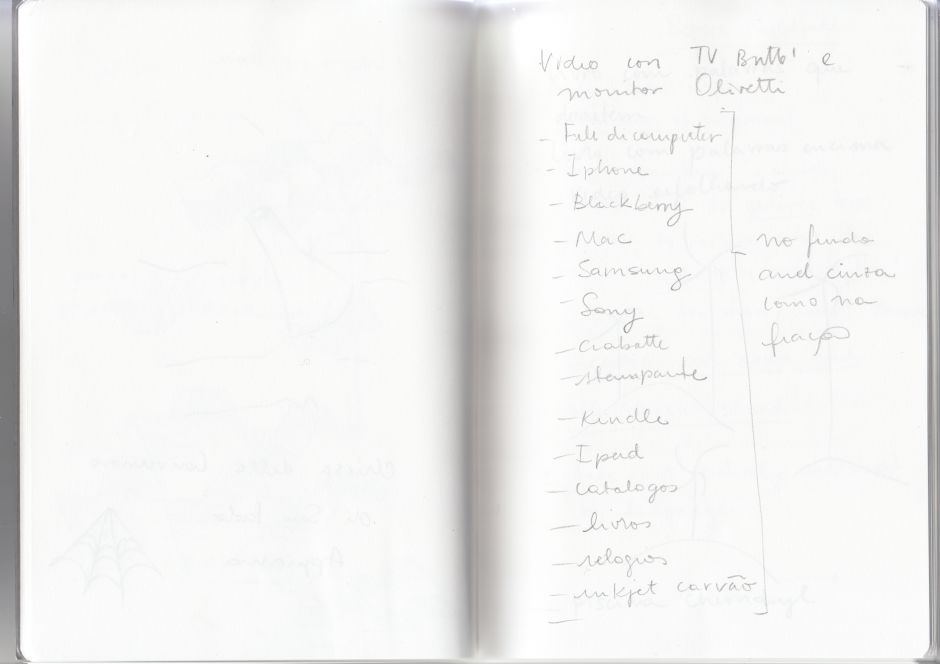 Video con TV e
monitor Olivetti
- File di computer
- Iphone
- Blackberry
- Mac
- Samsung
- Sony
- ciabatte
- stampante
- Kindle
- Ipad
- catalogos
- livros
- relogios
- inkjet carvão
no fundo
cinza
como na